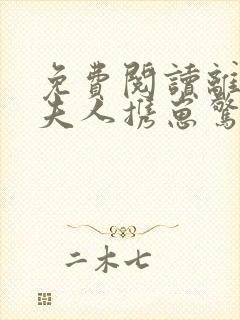 免費閱讀離
夫人携崽驚
二木七